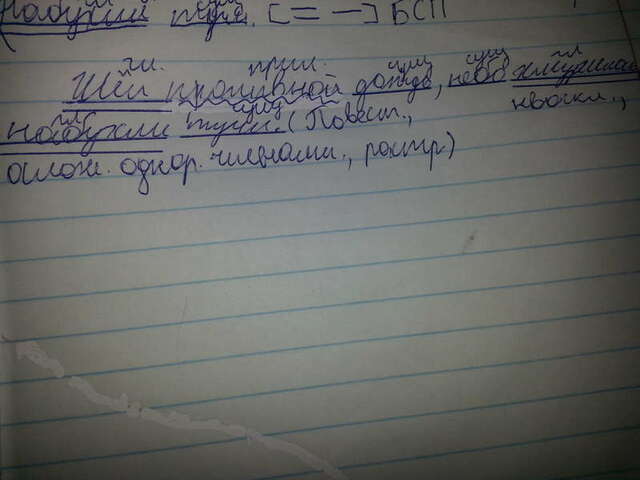 набухли тучи. [= —] БСП
гл. прил. сущ сущ гл
Шёл проливной дождь, небо хмурилось
гл сущ
набухли тучи. (Повест., невоскл.,
ослож. однор. членами., распр)